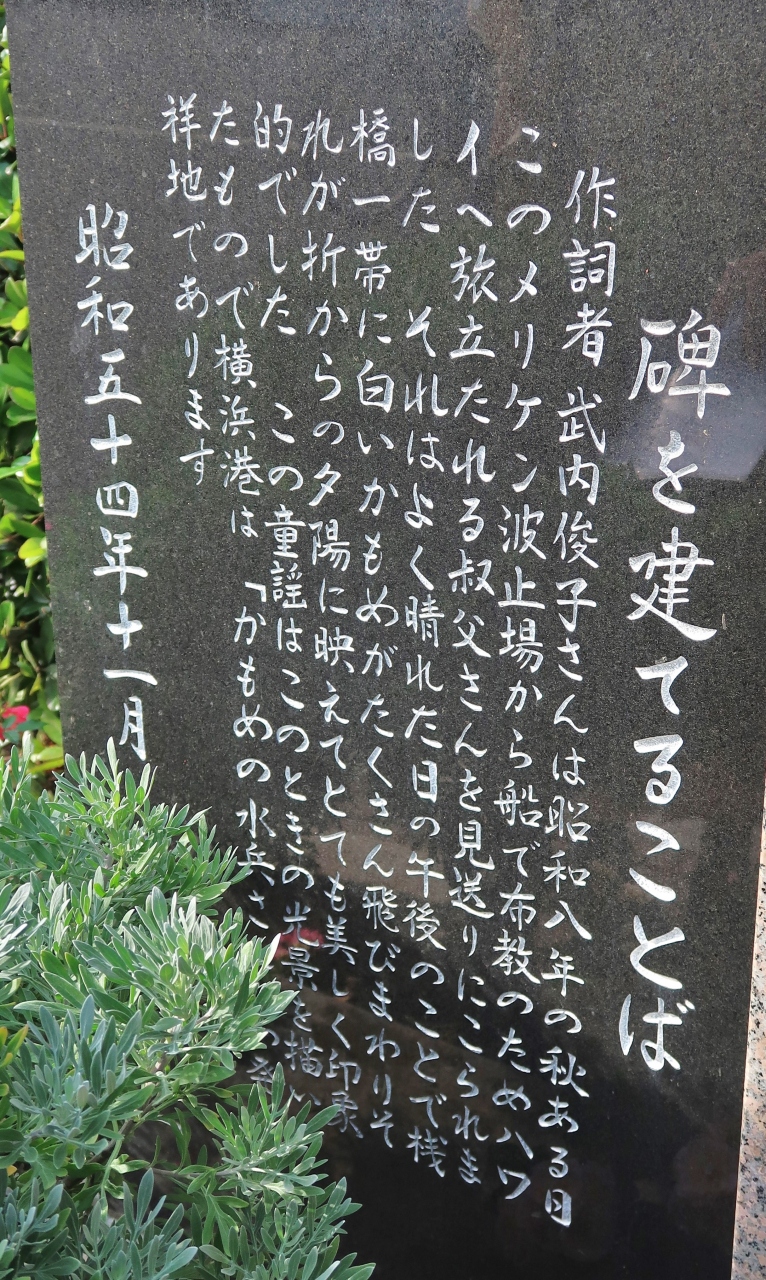 碑を建てることば
作詞者 武内俊子さんは昭和八年の秋ある日
このメリケン波止場から船で布教のためハワ
イへ旅立たれる叔父さんを見送りにこられま
した それはよく晴れた日の午後のことで桟
橋一帯に白いかもめがたくさん飛びまわりそ
れが折からの夕陽に映えてとても美しく印象
的でした この童謡はこのときの光景を描い
たもので横浜港は「かもめの水兵さ
祥地であります
昭和五十四年十一月